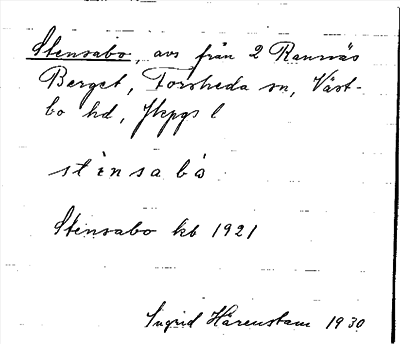 Stensabo, avs från 2 Rannäs
Berget, Forsheda sn, Väst-
bo hd, Jkpgs l
stènsabò
Stensabo kb 1921
Ingrid Härenstam 1930